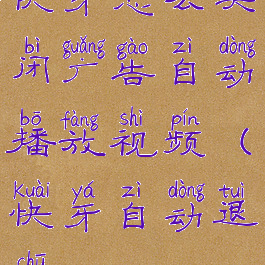 bì guǎng gào zì dòng
闭广告自动
bō fàng shì pín
播放视频（
Kuài yá zì dòng tuì
快牙自动退
chū